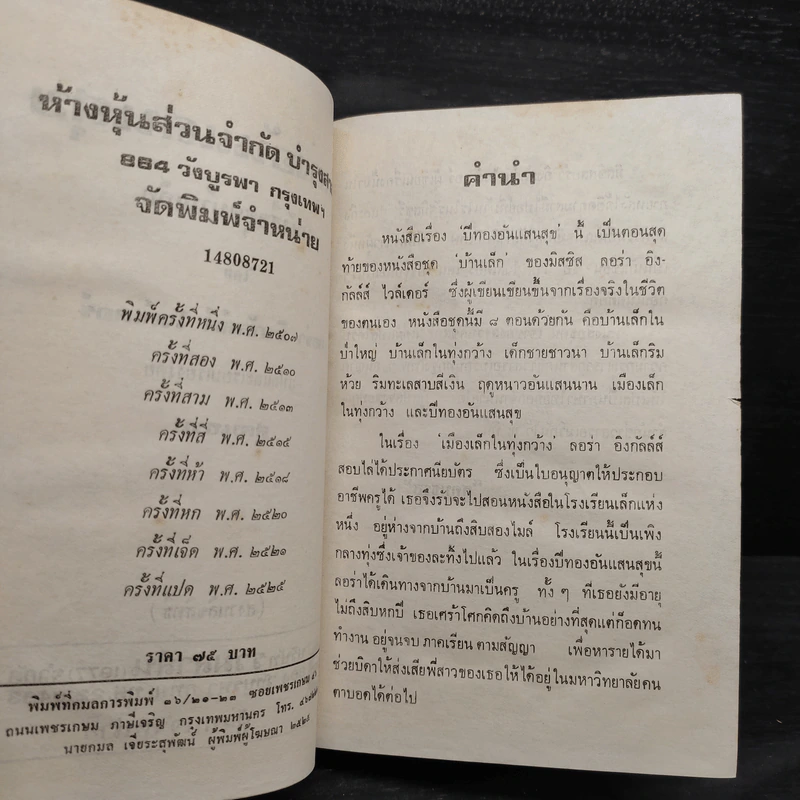 ห้างหุ้นส่วนจำกัด บำรุงสา
884 วังบูรพา กรุงเทพฯ
จัดพิมพ์จำหน่าย
14808721
พิมพ์ครั้งที่หนึ่ง พ.ศ. ๒๕๐๗
ครั้งที่สอง พ.ศ. ๒๕๑๐
ครั้งที่สาม พ.ศ. ๒๕๑๓
ครั้งที่สี่ พ.ศ. ๒๕๑๕
ครั้งที่ห้า พ.ศ. ๒๕๑๘
ครั้งที่หก พ.ศ. ๒๕๒๐
ครั้งที่เจ็ด พ.ศ. ๒๕๒๑
ครั้งที่แปด พ.ศ. ๒๕๒๕
ราคา ๗๕ บาท
พิมพ์ที่กมลการพิมพ์ ๑๖/๒๑-๒๓ ซอยเพชรเกษม
ถนนเพชรเกษม ภาษีเจริญ กรุงเทพมหานคร โทร.
นายกมล เจียระสุพัฒน์ ผู้พิมพ์ผู้โฆษณา ๒๕๒๕
คำนำ
หนังสือเรื่อง 'ปีทองอันแสนสุข' นี้ เป็นตอนสุด
ท้ายของหนังสือชุด 'บ้านเล็ก' ของมิสซิส ลอร่า อิง-
กัลล์ส์ ไวล์เดอร์ ซึ่งผู้เขียนเขียนขึ้นจากเรื่องจริงในชีวิต
ของตนเอง หนังสือชุดนี้มี ๘ ตอนด้วยกัน คือบ้านเล็กใน
ป่าใหญ่ บ้านเล็กในทุ่งกว้าง เด็กชายชาวนา บ้านเล็กริม
ห้วย ริมทะเลสาบสีเงิน ฤดูหนาวอันแสนนาน เมืองเล็ก
ในทุ่งกว้าง และปีทองอันแสนสุข
ในเรื่อง 'เมืองเล็กในทุ่งกว้าง' ลอร่า อิงกัลล์ส์
สอบไล่ได้ประกาศนียบัตร ซึ่งเป็นใบอนุญาตให้ประกอบ
อาชีพครูได้ เธอจึงรับจะไปสอนหนังสือในโรงเรียนเล็กแห่ง
หนึ่ง อยู่ห่างจากบ้านถึงสิบสองไมล์ โรงเรียนนี้เป็นเพิง
กลางทุ่งซึ่งเจ้าของละทิ้งไปแล้ว ในเรื่องปีทองอันแสนสุขนี้
ลอร่าได้เดินทางจากบ้านมาเป็นครู ทั้ง ๆ ที่เธอยังมีอายุ
ไม่ถึงสิบหกปี เธอเศร้าโศกคิดถึงบ้านอย่างที่สุดแต่ก็อดทน
ทำงาน อยู่จนจบ ภาคเรียน ตามสัญญา เพื่อหารายได้มา
ช่วยบิดาให้ส่งเสียพี่สาวของเธอให้ได้อยู่ในมหาวิทยาลัยคน
ตาบอดได้ต่อไป